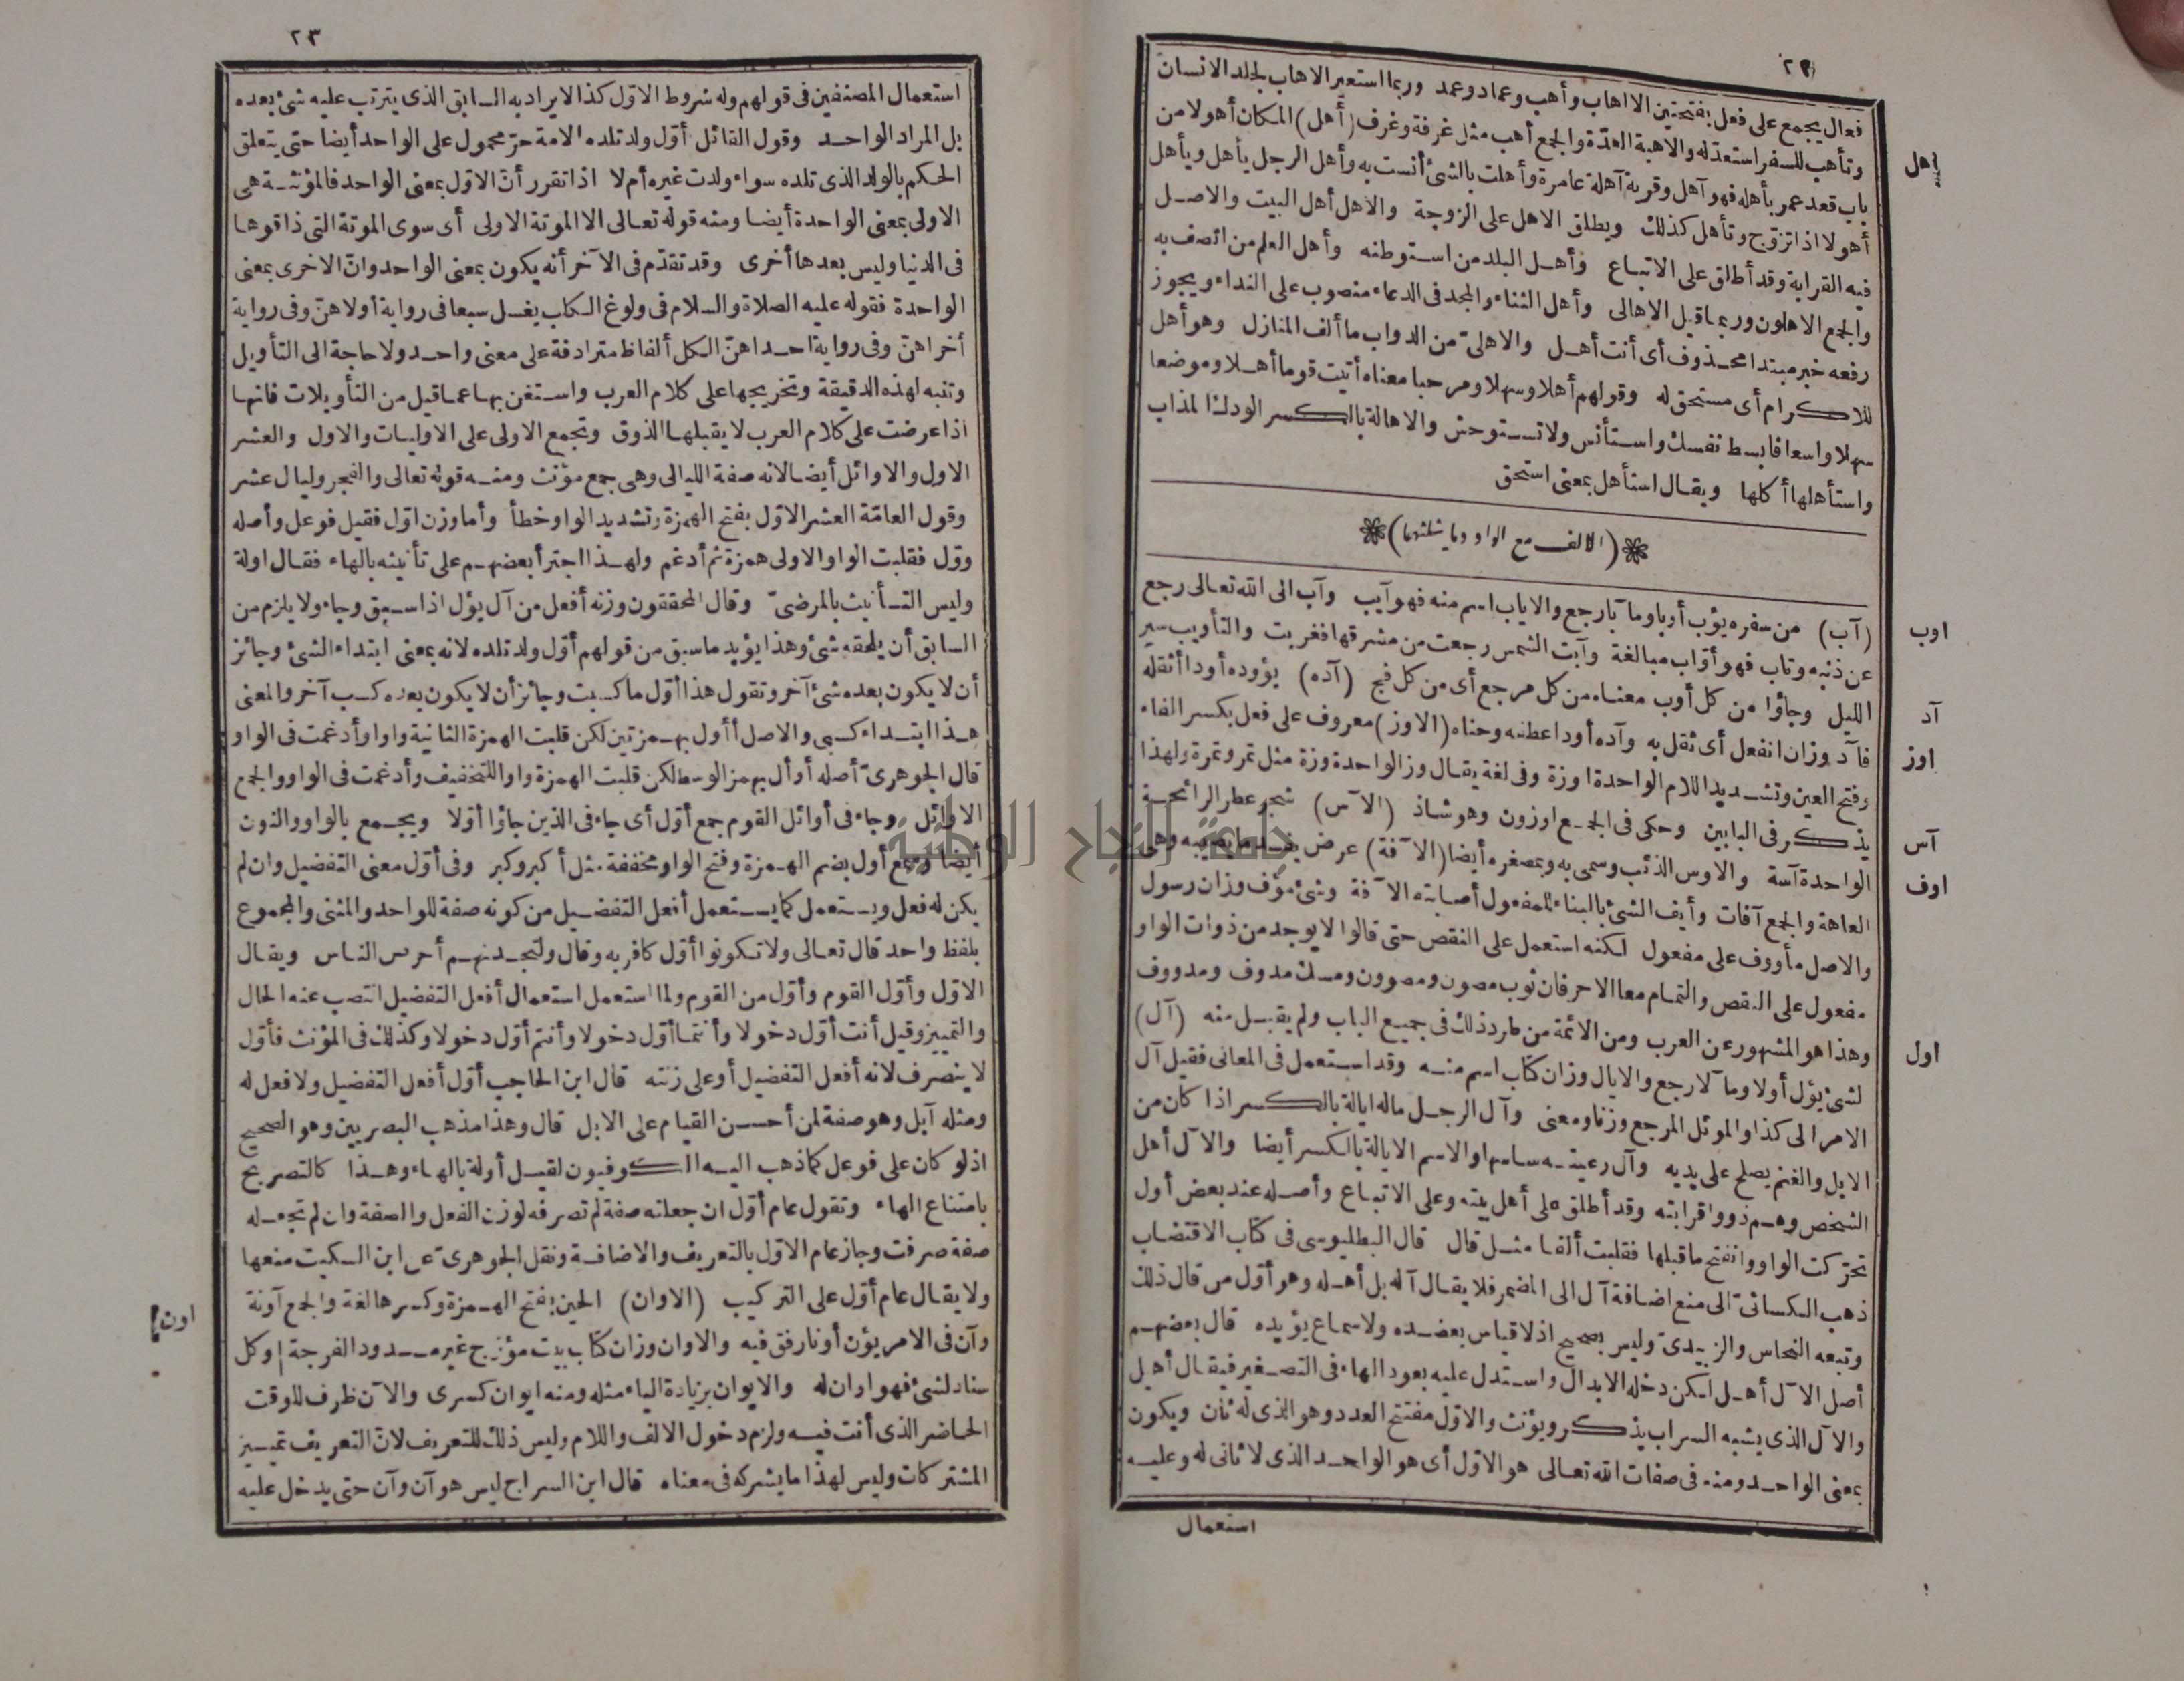 ٢٢
فعال يجمع على فعل بفتحتين الا اهاب وأهب وعماد وعمد وربما استعير الاهاب لجلد الانسان
وتأهب للسفر استعدّ له والاهبة العدّة والجمع أهب مثل غرفة وغرف (أهل) المكان أهولا من
اهل
باب قعد عمر بأهله فهو آهل وقرية آهلة عامرة وأهلت بالشئ أنست به وأهل الرجل يأهل ويأهل
أهولا اذا تزوّج وتأهل كذلك ويطلق الاهل على الزوجة والاهل أهل البيت والاصل
فيه القرابة وقد أطلق على الاتباع وأهل البلد من استوطنه وأهل العلم من اتصف به
والجمع الاهلون وربما قيل الاهالى وأهل الثناء والمجد فى الدعاء منصوب على النداء ويجوز
رفعه خبر مبتدا محذوف أى أنت أهل والاهلىّ من الدواب ما ألف المنازل وهو أهل
للاكرام أى مستحق له وقولهم أهلا وسهلا ومرحبا معناه أتيت قوما أهلا وموضعا
سهلا واسعا فابسط نفسك واستأنس ولا تستوحش والاهالة بالكسر الودك المذاب
واستأهلها أكلها ويقال استأهل بمعنى استحق
(الالف مع الواو وما يثلثهما)
(آب) من سفره يؤب أوبا ومآبا رجع والاياب اسم منه فهو آيب وآب الى الله تعالى رجع
اوب
عن ذنبه وتاب فهو أوّاب مبالغة وآبت الشمس رجعت من مشرقها فغربت والتأويب سير
الليل وجاؤا من كل أوب معناه من كل مرجع أى من كل فج (آده) يؤوده أودا أثقله
آد
فآد وزان انفعل أى ثقل به وآده أودا عطفه وحناه (الاوز) معروف على فعل بكسر الفاء
اوز
وفتح العين وتشديد اللام الواحدة اوزة وفى لغة يقال وز الواحدة وزة مثل تمر وتمرة ولهذا
يذكر فى البابين وحكى فى الجمع اوزون وهو شاذ (الآس) شجر عطر الرائحة
آس
الواحدة آسة والاوس الذئب وسمى به وبمصغره أيضا (الآفة) عرض يفسد ما يصيبه وهى
اوف
العاهة والجمع آفات وأيف الشئ بالبناء للمفعول أصابته الآفة وشئ مؤف وزان رسول
والاصل مأووف على مفعول لكنه استعمل على النقص حتى قالوا لا يوجد من ذوات الواو
مفعول على النقص والتمام معا الا حرفان ثوب مصون ومصوون ومسك مدوف ومدووف
وهذا هو المشهور عن العرب ومن الائمة من طرد ذلك فى جميع الباب ولم يقبل منه (آل)
اول
لشئ يؤل أولا ومآلا رجع والايال وزان كتاب اسم منه وقد استعمل فى المعانى فقيل آل
الامر الى كذا والموئل المرجع وزنا ومعنى وآل الرجل ماله ايالة بالكسر اذا كان من
الابل والغنم يصلح على يديه وآل رعيته ساسها والاسم الايالة بالكسر أيضا والآل أهل
الشخص وهم ذوو اقرابته وقد أطلق على أهل بيته وعلى الاتباع وأصله عند بعض أول
تحرّكت الواو وانفتح ما قبلها فقلبت ألفا مثل قال قال البطليوسى فى كتاب الاقتضاب
ذهب الكسائىّ الى منع اضافة آل الى المضمر فلا يقال آله بل أهله وهو أوّل من قال ذلك
وتبعه النحاس والزبيدىّ وليس بصحيح اذ لا قياس يعضده ولا سماع يؤيده قال بعضهم
أصل الآل أهل لكن دخله الابدال واستدل عليه بعود الهاء فى التصغير فيقال أهيل
والآل الذى يشبه السراب يذكر ويؤنث والاوّل مفتتح العدد وهو الذى له ثان ويكون
بمعنى الواحد ومنه فى صفات الله تعالى هو الاوّل أى هو الواحد الذى لا ثانى له وعليه
استعمال
٢٣
استعمال المصنفين فى قولهم وله شروط الاوّل كذا لا يراد به السابق الذى يترتب عليه شئ بعده
بل المراد الواحد وقول القائل أوّل ولد تلده الامة حرّ محمول على الواحد أيضا حتى يتعلق
الحكم بالولد الذى تلده سواء ولدت غيره أم لا اذا تقرر أنّ الاوّل بمعنى الواحد فالمؤنثة هى
الاولى بمعنى الواحدة أيضا ومنه قوله تعالى الا الموتة الاولى أى سوى الموتة التى ذاقوها
فى الدنيا وليس بعدها أخرى وقد تقدّم فى الآخر أنه يكون بمعنى الواحد وانّ الاخرى بمعنى
الواحدة فقوله عليه الصلاة والسلام فى ولوغ الكلب يغسل سبعا فى رواية أولاهنّ وفى رواية
أخراهنّ وفى رواية احداهنّ الكل ألفاظ مترادفة على معنى واحد ولا حاجة الى التأويل
وتنبه لهذه الدقيقة وتخريجها على كلام العرب واستغن بها عما قيل من التأويلات فانها
اذا عرضت على كلام العرب لا يقبلها الذوق وتجمع الاولى على الاوليات والاول والعشر
الاول والاوائل أيضا لانه صفة الليالى وهى جمع مؤنث ومنه قوله تعالى والفجر وليال عشر
وقول العامّة العشر الاوّل بفتح الهمزة وتشديد الواو خطأ وأما وزن اوّل فقيل فوعل وأصله
وول فقلبت الواو الاولى همزة ثم أدغم ولهذا اجترأ بعضهم على تأنيثه بالهاء فقال اولة
وليس التأنيث بالمرضىّ وقال المحققون وزنه أفعل من آل يؤل اذا سبق وجاء ولا يلزم من
السابق أن يلحقه شئ وهذا يؤيد ما سبق من قولهم أوّل ولد تلده لانه بمعنى ابتداء الشئ وجائز
أن لا يكون بعده شئ آخر وتقول هذا أوّل ما كسبت وجائز أن لا يكون بعده كسب آخر والمعنى
هذا ابتداء كسبى والاصل أأول بهمزتين لكن قلبت الهمزة الثانية واوا وأدغمت فى الواو
قال الجوهرىّ أصله أوأل بهمز الوسط لكن قلبت الهمزة واوا للتخفيف وأدغمت فى الواو والجمع
الاوائل وجاء فى أوائل القوم جمع أوّل أى جاء فى الذين جاؤا أوّلا ويجمع بالواو والنون
أيضا وسمع أول بضم الهمزة وفتح الواو مخففة مثل أكبر وكبر وفى أوّل معنى التفضيل وان لم
يكن له فعل ويستعمل كما يستعمل أفعل التفضيل من كونه صفة للواحد والمثنى والمجموع
بلفظ واحد قال تعالى ولا تكونوا أوّل كافر به وقال ولتجدنهم أحرص الناس ويقال
الاوّل وأوّل القوم وأوّل من القوم ولما استعمل استعمال أفعل التفضيل انتصب عنه الحال
والتمييز وقيل أنت أوّل دخولا وأنتما أوّل دخولا وأنتم أوّل دخولا وكذلك فى المؤنث فأوّل
لا ينصرف لانه أفعل التفضيل أو على زنته قال ابن الحاجب أوّل أفعل التفضيل ولا فعل له
ومثله آبل وهو صفة لمن أحسن القيام على الابل قال وهذا مذهب البصريين وهو الصحيح
اذ لو كان على فوعل كما ذهب اليه الكوفيون لقيل أولة بالهاء وهذا كالتصريح
بامتناع الهاء وتقول عام أوّل ان جعلته صفة لم تصرفه لوزن الفعل والصفة وان لم تجعله
صفة صرفت وجاز عام الاوّل بالتعريف والاضافة ونقل الجوهرىّ عن ابن السكيت منعها
ولا يقال عام أوّل على التركيب (الاوان) الحين بفتح الهمزة وكسرها لغة والجمع آونة
اون
وآن فى الامر يؤن أونا رفق فيه والاوان وزان كتاب بيت مؤزج غير مسدود الفرجة وكل
سناد لشئ فهو اوان له والايوان بزيادة الياء مثله ومنه ايوان كسرى والآن ظرف للوقت
الحاضر الذى أنت فيه ولزم دخول الالف واللام وليس ذلك للتعريف لانّ التعريف تمييز
المشتركات وليس لهذا ما يشركه فى معناه قال ابن السراج ليس هو آن وآن حتى يدخل عليه
جامعة النجاح الوطنية